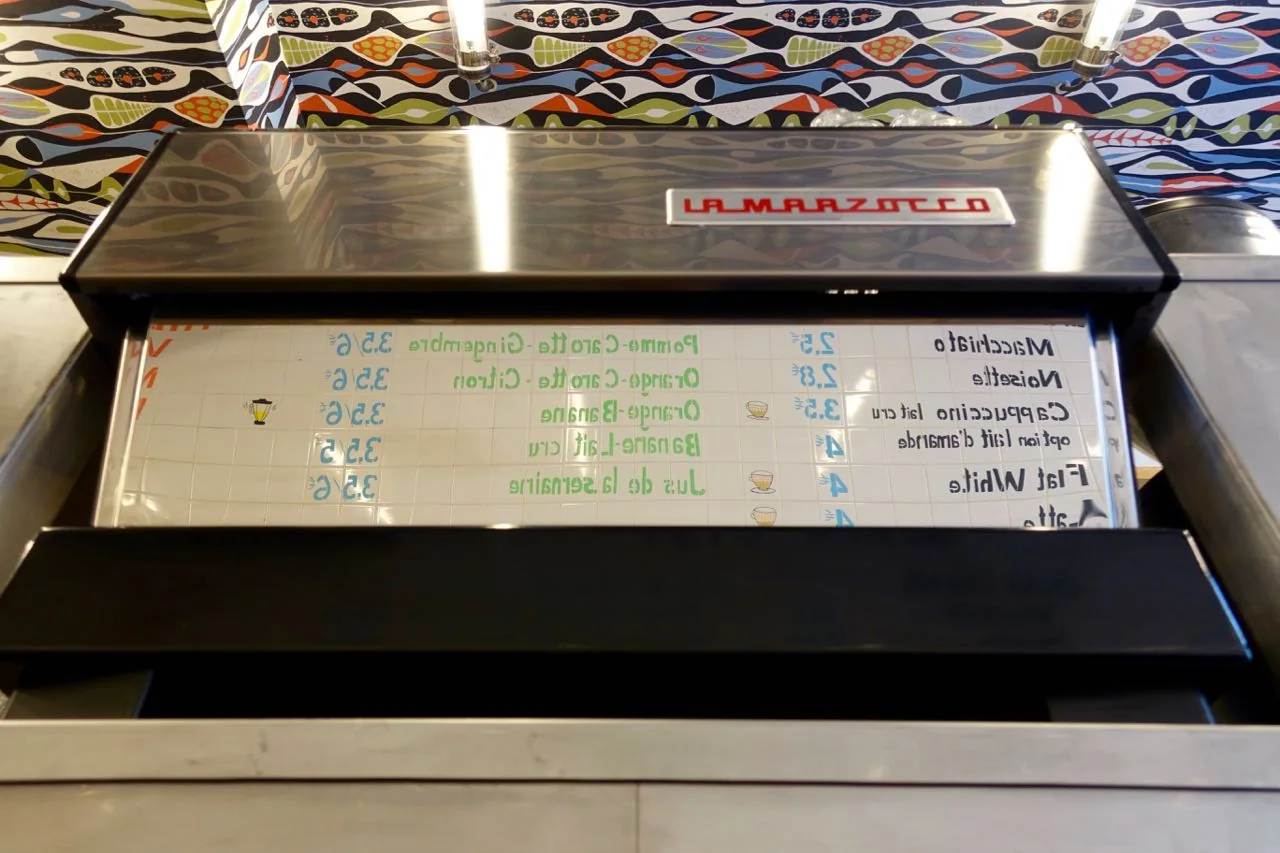 LA MARZOCCO
Macchiato 2.5€
Noisette 2.8€
Cappuccino lait cru 3.5€
option lait d'amande 4€
Flat White 4€
Latte 4€
Pomme-Carotte-Gingembre 3.5/6€
Orange-Carotte-Citron 3.5/6€
Orange-Banane 3.5/6€
Banane-Lait cru 3.5 5
Jus de la semaine 3.5/6€